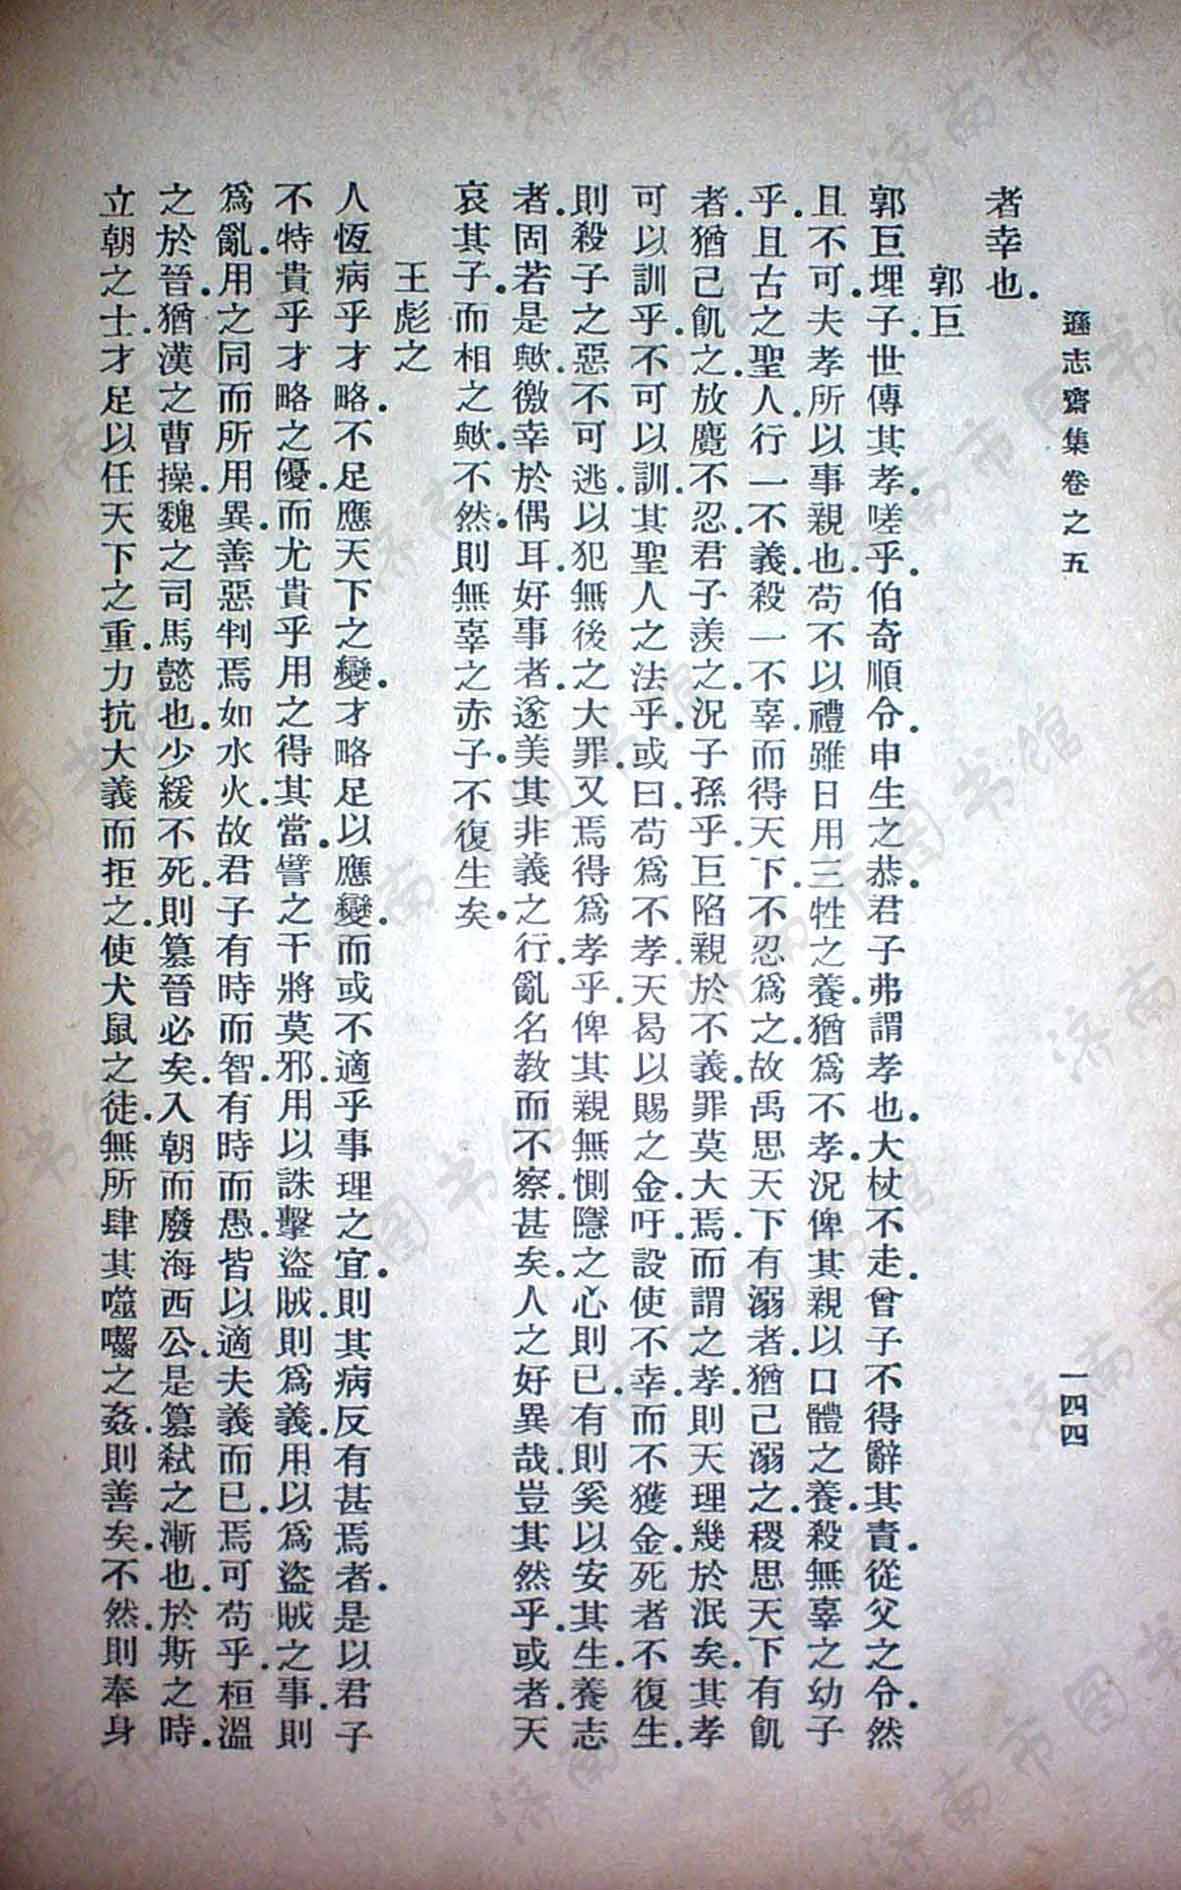 遜志齋集卷之五
一四四
者幸也.
郭巨
郭巨埋子.世傳其孝.嗟乎.伯奇順令.申生之恭.君子弗謂孝也.大杖不走.曾子不得辭其責.從父之令.然
且不可.夫孝所以事親也.苟不以禮.雖日用三牲之養.猶爲不孝.況俾其親以口體之養.殺無辜之幼子
乎.且古之聖人.行一不義.殺一不辜.而得天下.不忍爲之.故禹思天下有溺者.猶己溺之.稷思天下有飢
者.猶己飢之.放麑不忍.君子羨之.況子孫乎.巨陷親於不義.罪莫大焉.而謂之孝.則天理幾於泯矣.其孝
可以訓乎.不可以訓.其聖人之法乎.或曰.苟爲不孝.天曷以賜之金.吁.設使不幸而不獲金.死者不復生.
則殺子之惡不可逃.以犯無後之大罪.又焉得爲孝乎.俾其親無惻隱之心則已.有則奚以安其生.養志
者.固若是歟.徼幸於偶耳.好事者.遂美其非義之行.亂名教而不察.甚矣.人之好異哉.豈其然乎.或者.天
哀其子.而相之歟.不然.則無辜之赤子.不復生矣.
王彪之
人恆病乎才略.不足應天下之變.才略足以應變.而或不適乎事理之宜.則其病反有甚焉者.是以君子
不特貴乎才略之優.而尤貴乎用之得其當.譬之干將莫邪.用以誅擊盜賊.則爲義.用以爲盜賊之事.則
爲亂.用之同而所用異.善惡判焉.如水火.故君子有時而智.有時而愚.皆以適夫義而已.焉可苟乎.桓溫
之於晉.猶漢之曹操.魏之司馬懿也.少緩不死.則篡晉必矣.入朝而廢海西公.是篡弒之漸也.於斯之時.
立朝之士.才足以任天下之重.力抗大義而拒之.使犬鼠之徒.無所肆其噬囓之姦.則善矣.不然.則奉身